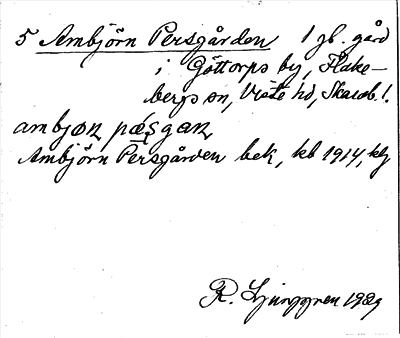 5 Ambjörn Persgården 1 jb. gård
i Göttorps by, Flake-
bergs sn, Viste hd, Skarab. l.
ambjøn pæsgan
Ambjörn Persgården bek, kb 1914, klg
R. Ljunggren 1929